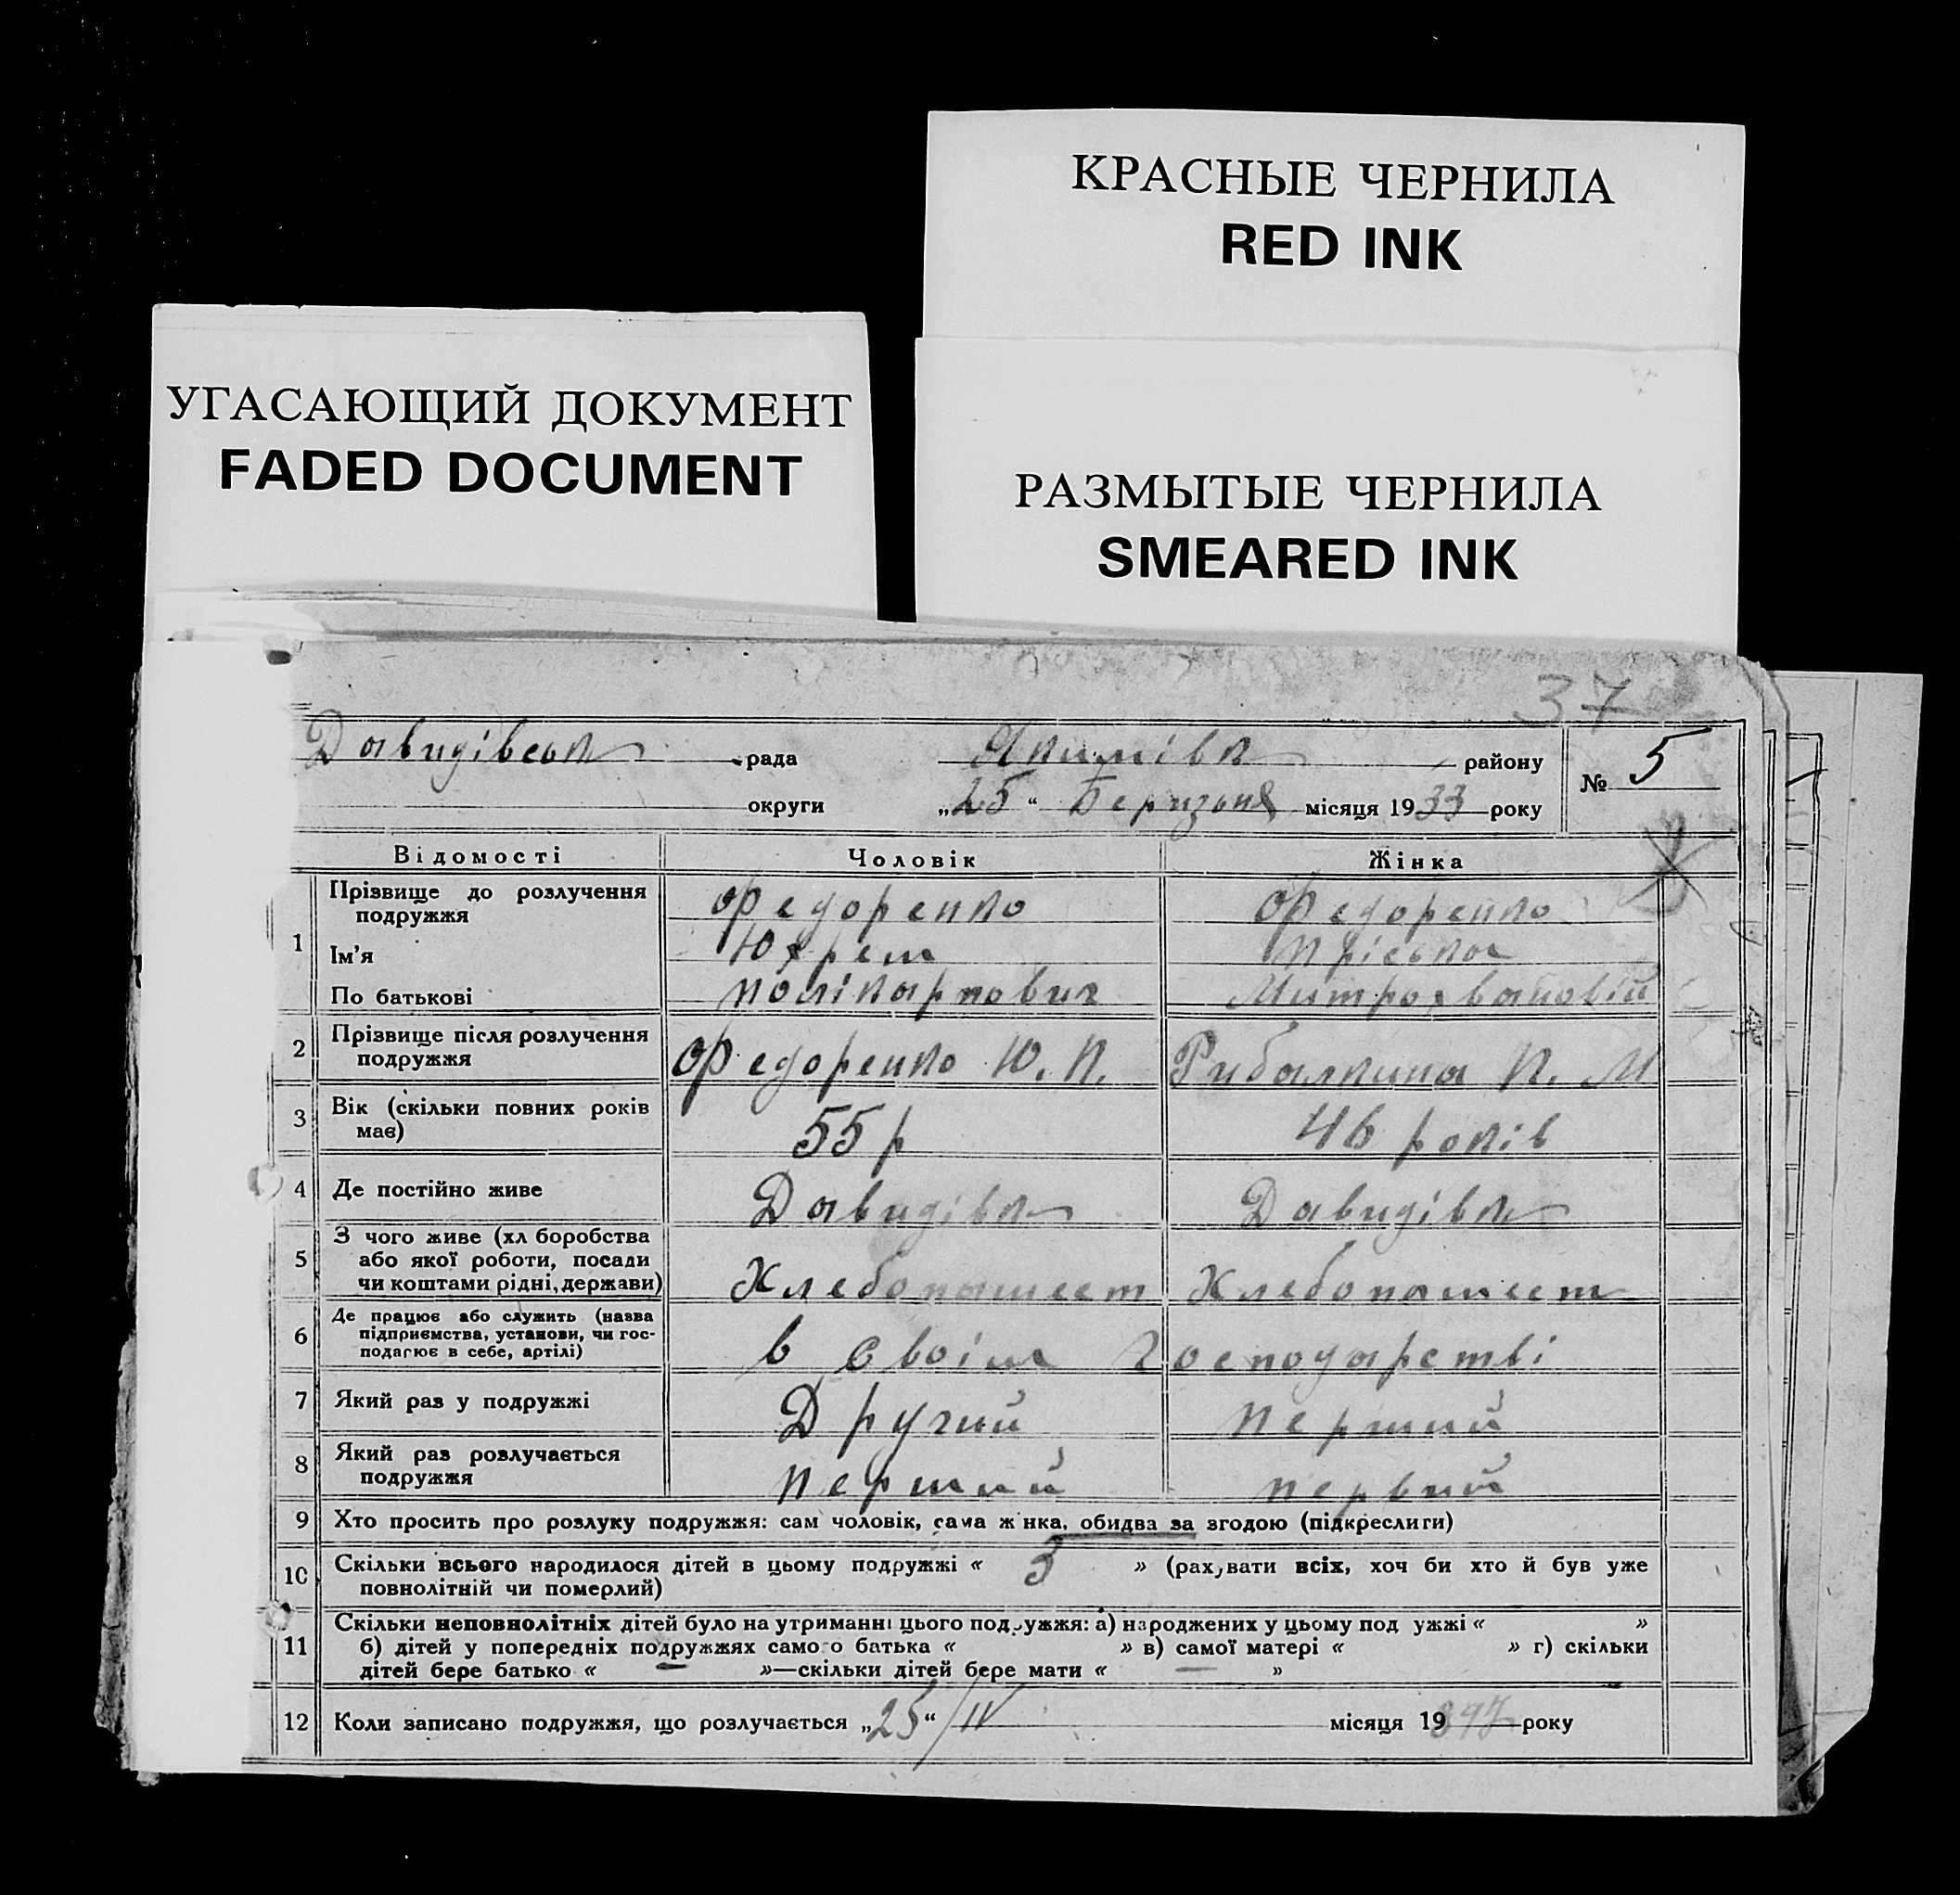 КРАСНЫЕ ЧЕРНИЛА
RED INK
УГАСАЮЩИЙ ДОКУМЕНТ
FADED DOCUMENT
РАЗМЫТЫЕ ЧЕРНИЛА
SMEARED INK
37
Давидівська рада Якимівка району
№ 5
округи „25“ Беризоня місяця 1933 року
Відомості Чоловік Жінка
1 Прізвище до розлучення подружжя Федоренко Федоренко
Ім'я Юхрем Пріська
По батькові Полікарпович
2 Прізвище після розлучення подружжя Федоренко Ю. П. Рибалкина П. М
3 Вік (скільки повних років має) 55 р 46 років
4 Де постійно живе Давидівка Давидівка
5 З чого живе (хл боробства
або якої роботи, посади
чи коштами рідні, держави) Хлебопашест Хлебопашест
6 Де працює або служить (назва
підприємства, установи, чи гос-
подарює в себе, артілі) в своїм господарстві
7 Який раз у подружжі Другий Перший
8 Який раз розлучається подружжя Перший Первий
9 Хто просить про розлуку подружжя: сам чоловік, сама ж нка, обидва за згодою (підкреслити)
10 Скільки всього народилося дітей в цьому подружжі « 3 » (рахувати всіх, хоч би хто й був уже
повнолітній чи померлий)
11 Скільки неповнолітніх дітей було на утриманні цього подружжя: а) народжених у цьому под ужжі « »
б) дітей у попередніх подружжях самого батька « » в) самої матері « » г) скільки
дітей бере батько « — »—скільки дітей бере мати « — »
12 Коли записано подружжя, що розлучається „25“/IV місяця 19 року